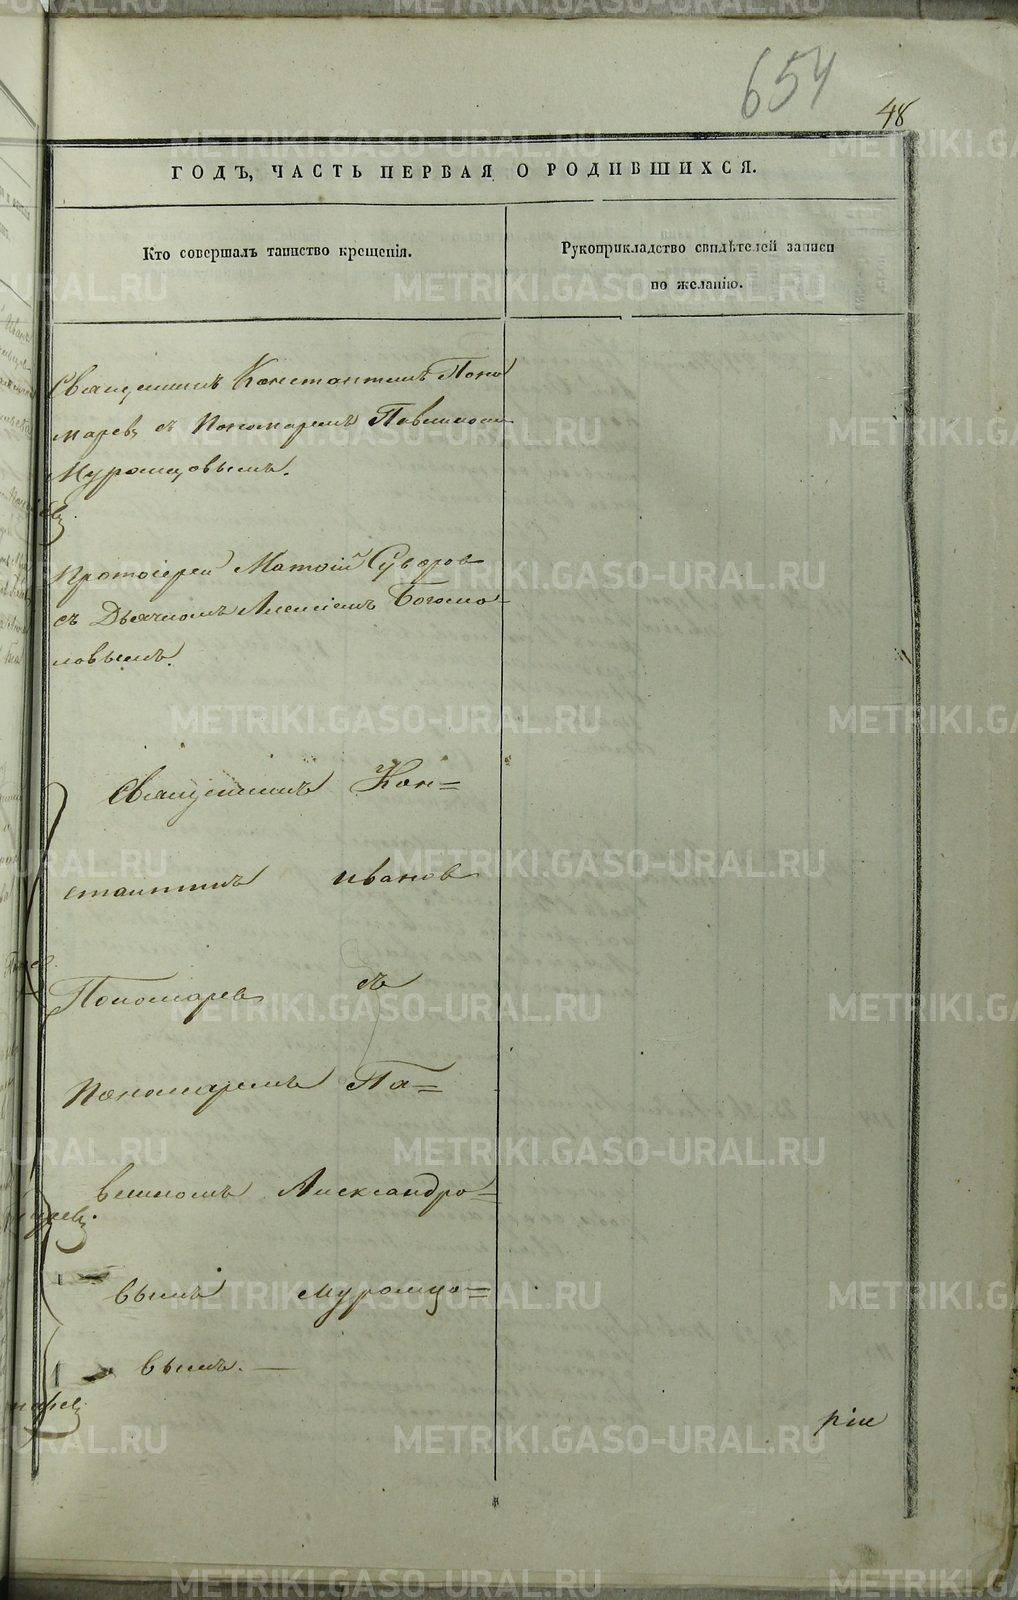 654
48
ГОДЪ, ЧАСТЬ ПЕРВАЯ О РОДИВШИХСЯ.
Кто совершалъ таинство крещенія.
Рукоприкладство свидѣтелей записи
по желанію.
Священникъ Константинъ Поно
маревъ съ Пономаремъ Павлиномъ
Муромцовымъ.
Протоіерей Матѳій Суворов
съ Дьячкомъ Алексіемъ Богомо-
ловымъ.
Священникъ Кон=
стантинъ Иванов
Пономарев съ
Пономаремъ Па=
влиномъ Александро=
вымъ Муромцо=
вымъ. —
ріи
METRIKI.GASO-URAL.RU